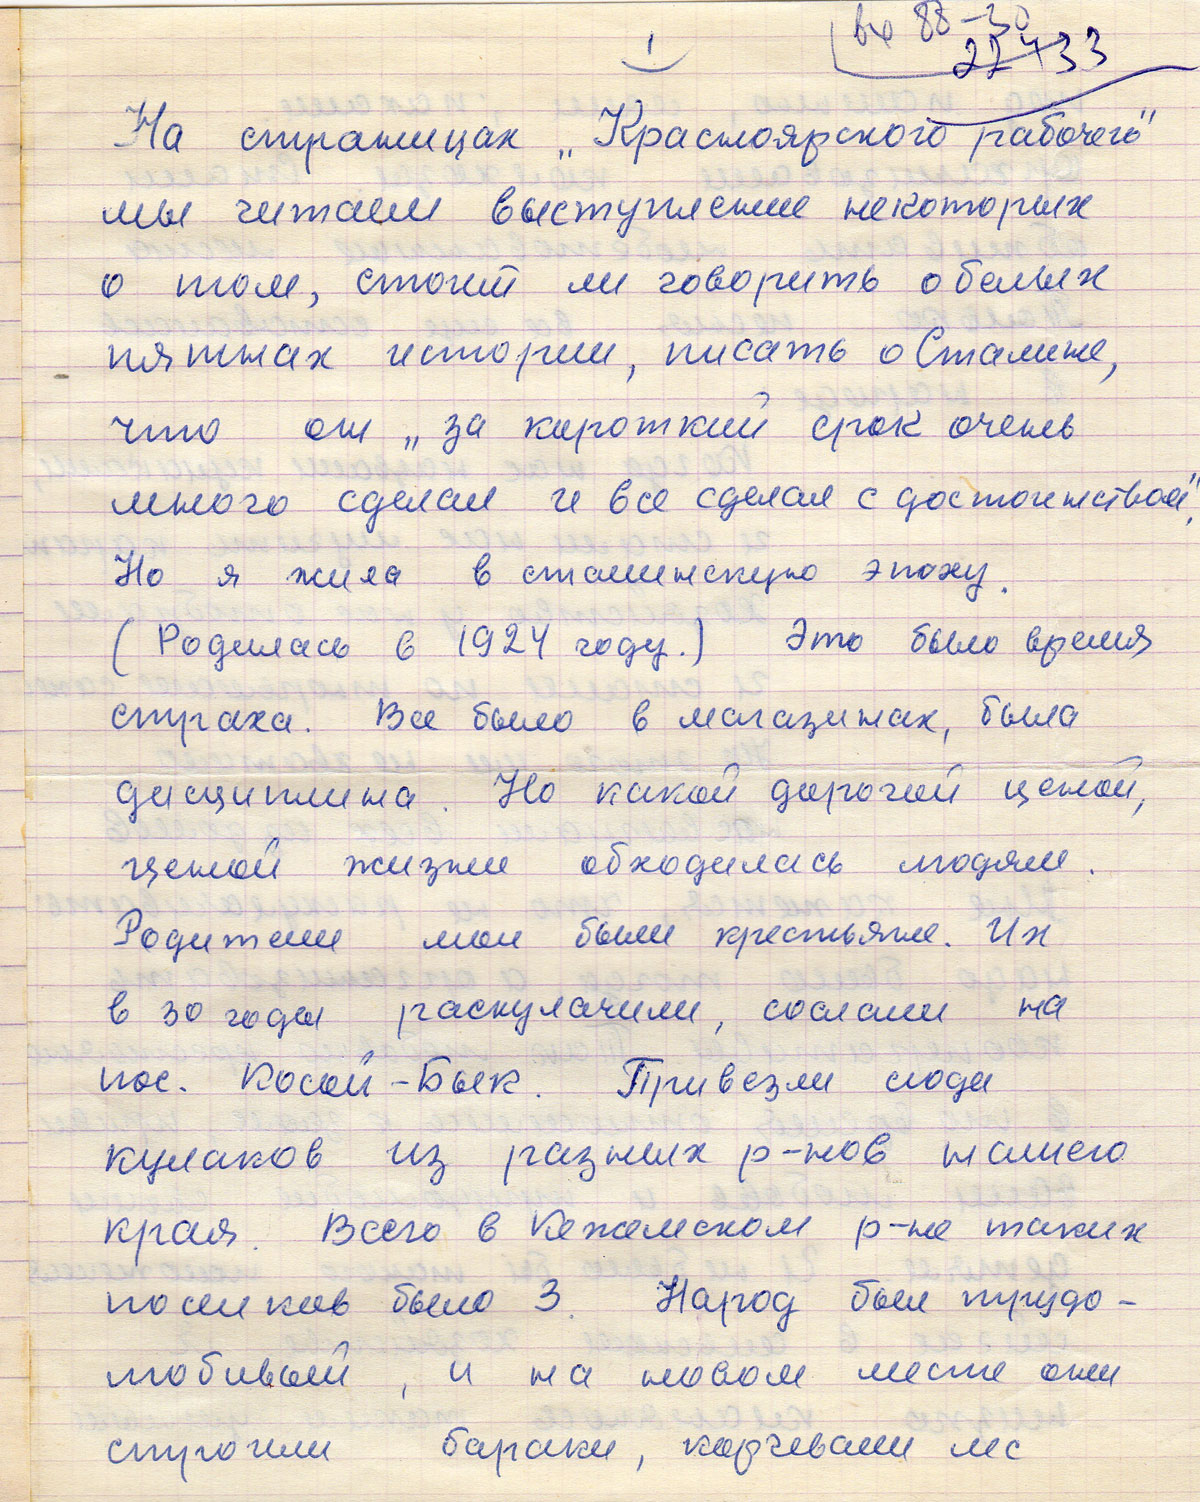 вх 88-30
22433
1
На страницах „Красноярского рабочего"
мы читаем выступление некоторых
о том, стоит ли говорить о белых
пятнах истории, писать о Сталине,
что он „за короткий срок очень
много сделал и все сделал с достоинством",
Но я жила в сталинскую эпоху.
(Родилась в 1924 году.) Это было время
страха. Все было в магазинах, была
дисциплина. Но какой дорогой ценой,
ценой жизни обходилась людям.
Родители мои были крестьяне. Их
в 30 годы раскулачили, сослали на
пос. Косой-Бык. Привезли сюда
кулаков из разных р-нов нашего
края. Всего в Кежемском р-не таких
поселков было 3. Народ был трудо-
любивый, и на новом месте они
строили бараки, корчевали лес